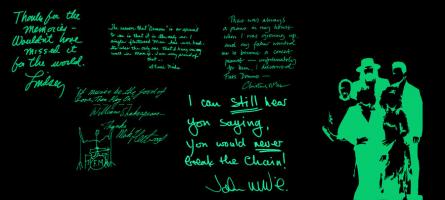 Thanks for the
memories –
Wouldn't have
missed it
for the world.
Lindsey
The reason that "Rumours" is so special
to me is that it is the only one. I
and I'm very proud of
that –
There was always
a piano in my house
when I was growing up
and my father wanted
me to become a concert
pianist – unfortunately
for him, I discovered
Fats Domino –
Christine McVie
"If music be the food of
love, then play on"
William Shakespeare
Thanks
Mick Fleetwood
I can still hear
you saying,
you would never
break the chain!
John McVie.